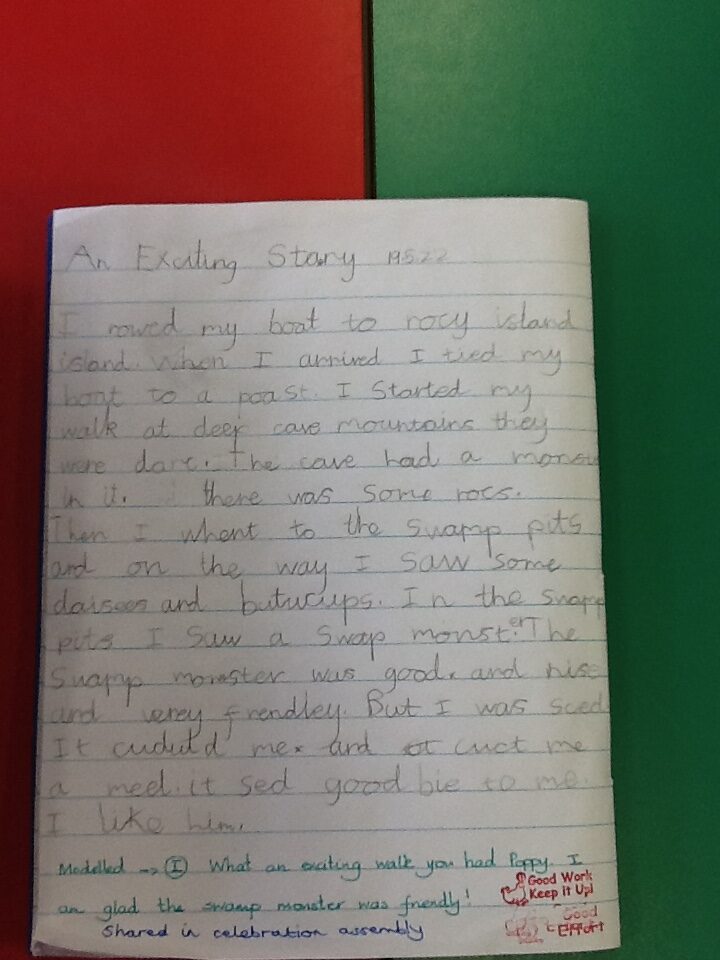 An Exciting Story 19.5.22
I rowed my boat to rocy island
island. When I arrived I tied my
boat to a poast. I Started my
walk at deep cave mountains they
were darc. The cave had a
in it. there was some rocs.
Then I whent to the swamp pits
and on the way I saw some
daisees and butucups. In the swamp
pits I saw a swap monster. The
Swamp monster was good. and nise
and verey frendley. But I was sced
It cuduld me. and cuct me
a meel. it sed good bie to me.
I like him.
Modelled → I What an exciting walk you had Poppy. I
am glad the swamp monster was friendly!
Shared in celebration assembly
Good Work
Keep It Up!
Good
Effort